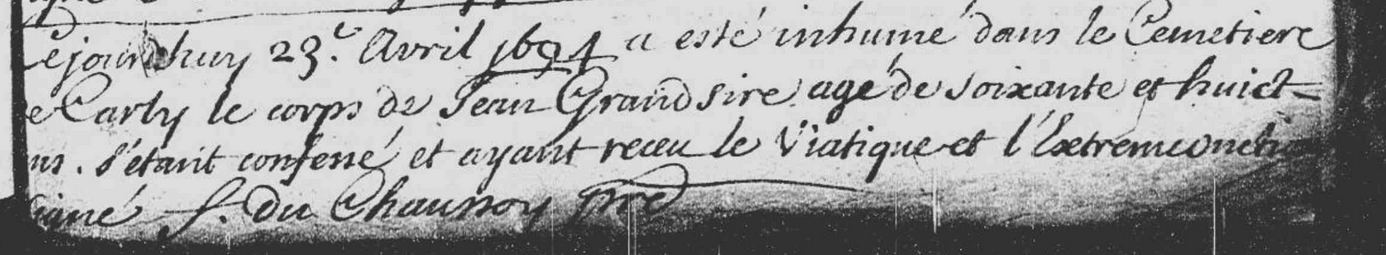 Cejourdhuy 23.e Avril 1694 a esté inhumé dans le Cemetiere
de Carly le corps de Jean Grandsire agé de soixante et huict
ans. s'étant confessé et ayant receu le Viatique et l'Extremeonction
signé f. Du Chaussoy pre